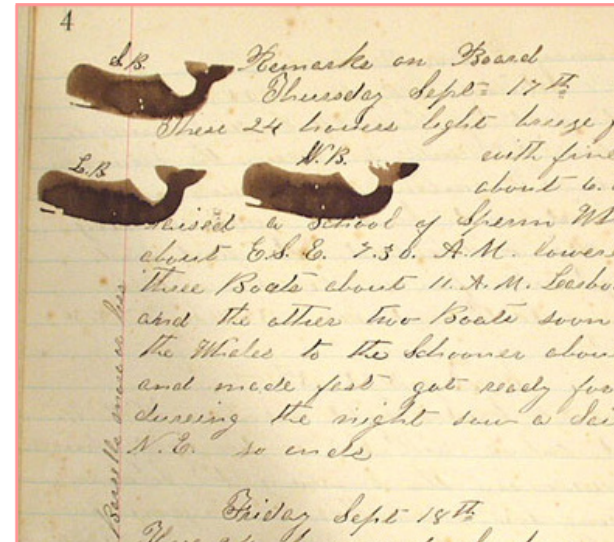 4
S.B.
Remarks on Board
Thursday Sept= 17th
These 24 houers light breeze
L.B.
W.B.
with fine
about 6.
Raised a School of Sperm
about E.S.E. 7.30. A.M. lowere
three Boats about 11. A.M. Larbo
and the other two Boats soon
the Whales to the Schooner abou
and made fast got ready for
dureing the night saw a Sai
N.E. so ends
Friday Sept 18th